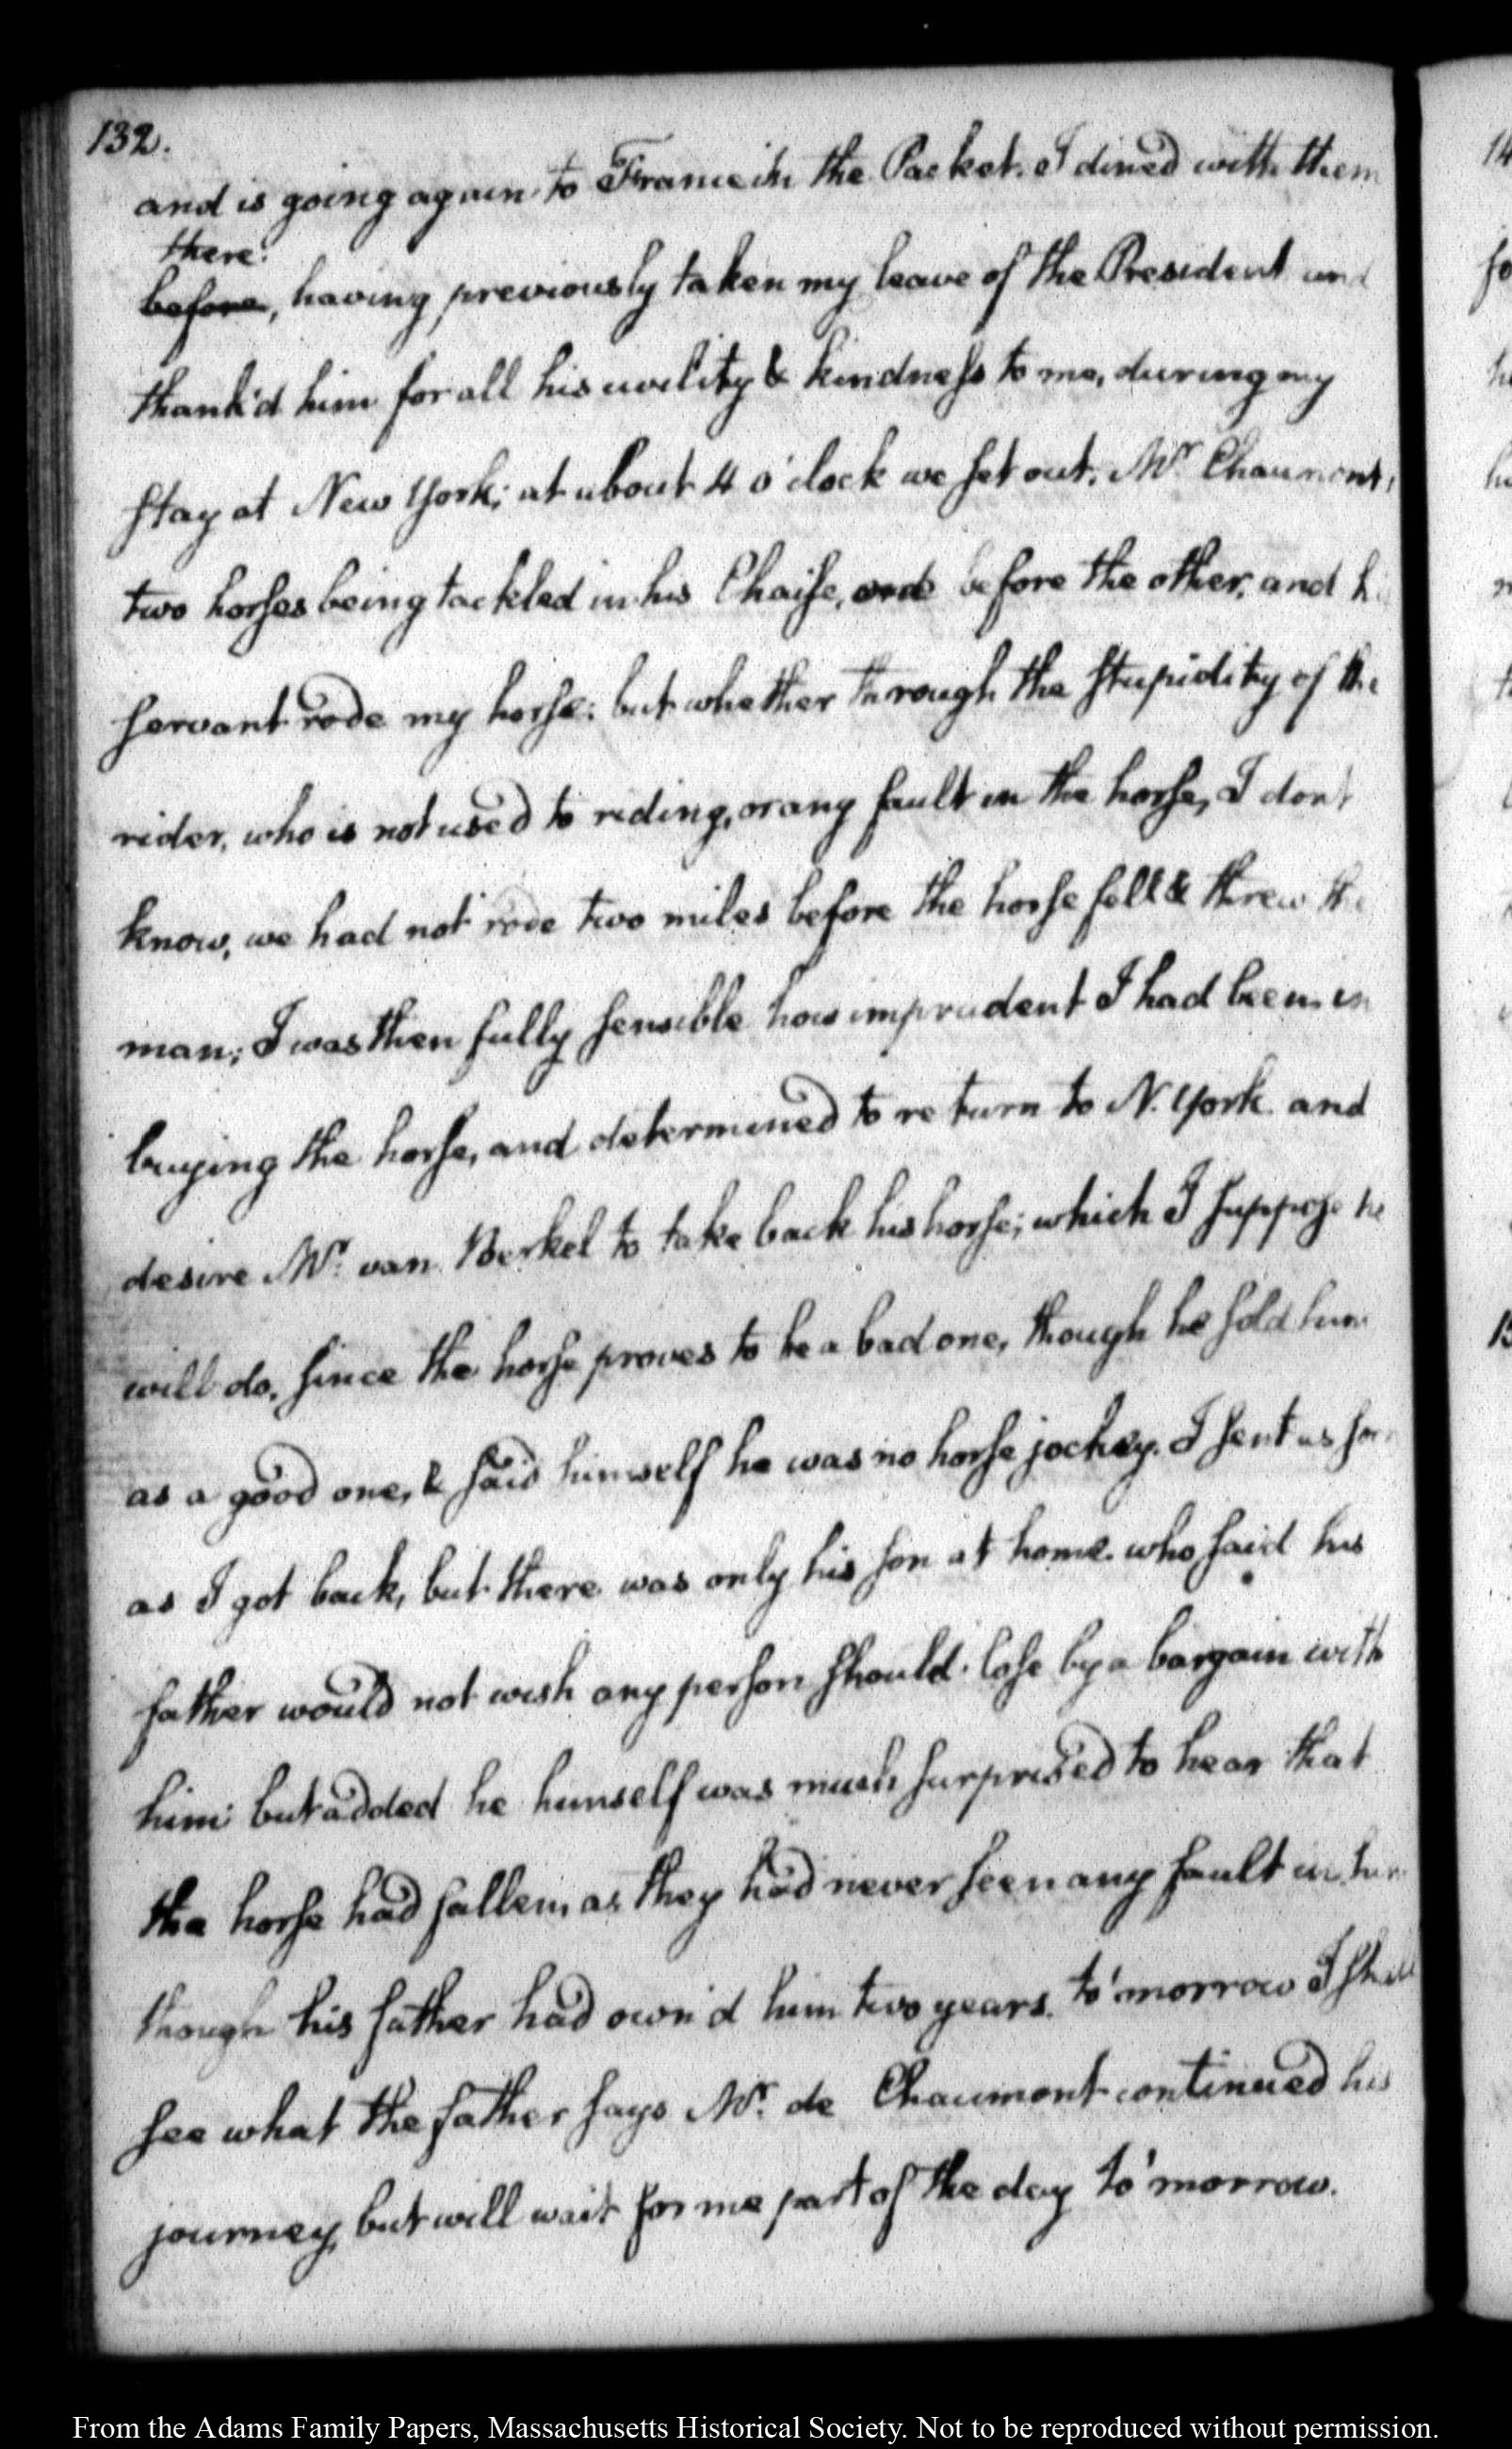 132.
and is going again to France in the Packet. I dined with them
there.
before, having previously taken my leave of the President and
thank'd him for all his civility & kindness to me, during my
stay at New York; at about 4 o'clock we set out. Mr. Chaumont,
two horses being tackled in his Chaise, one before the other, and his
servant rode my horse: but whether through the stupidity of the
rider, who is not used to riding, or any fault in the horse, I dont
know, we had not rode two miles before the horse fell & threw the
man; I was then fully sensible how imprudent I had been in
buying the horse, and determined to return to N. York and
desire Mr. van Berkel to take back his horse; which I suppose he
will do, since the horse proves to be a bad one, though he sold him
as a good one, & said himself he was no horse jockey. I sent as soon
as I got back, but there was only his son at home. who said his
father would not wish any person should lose by a bargain with
him: but added he himself was much surprised to hear that
the horse had fallen, as they had never seen any fault in him
though his father had own'd him two years. to'morrow I shall
see what the father says Mr. de Chaumont continued his
journey, but will wait for me part of the day to'morrow.
14
15
From the Adams Family Papers, Massachusetts Historical Society. Not to be reproduced without permission.